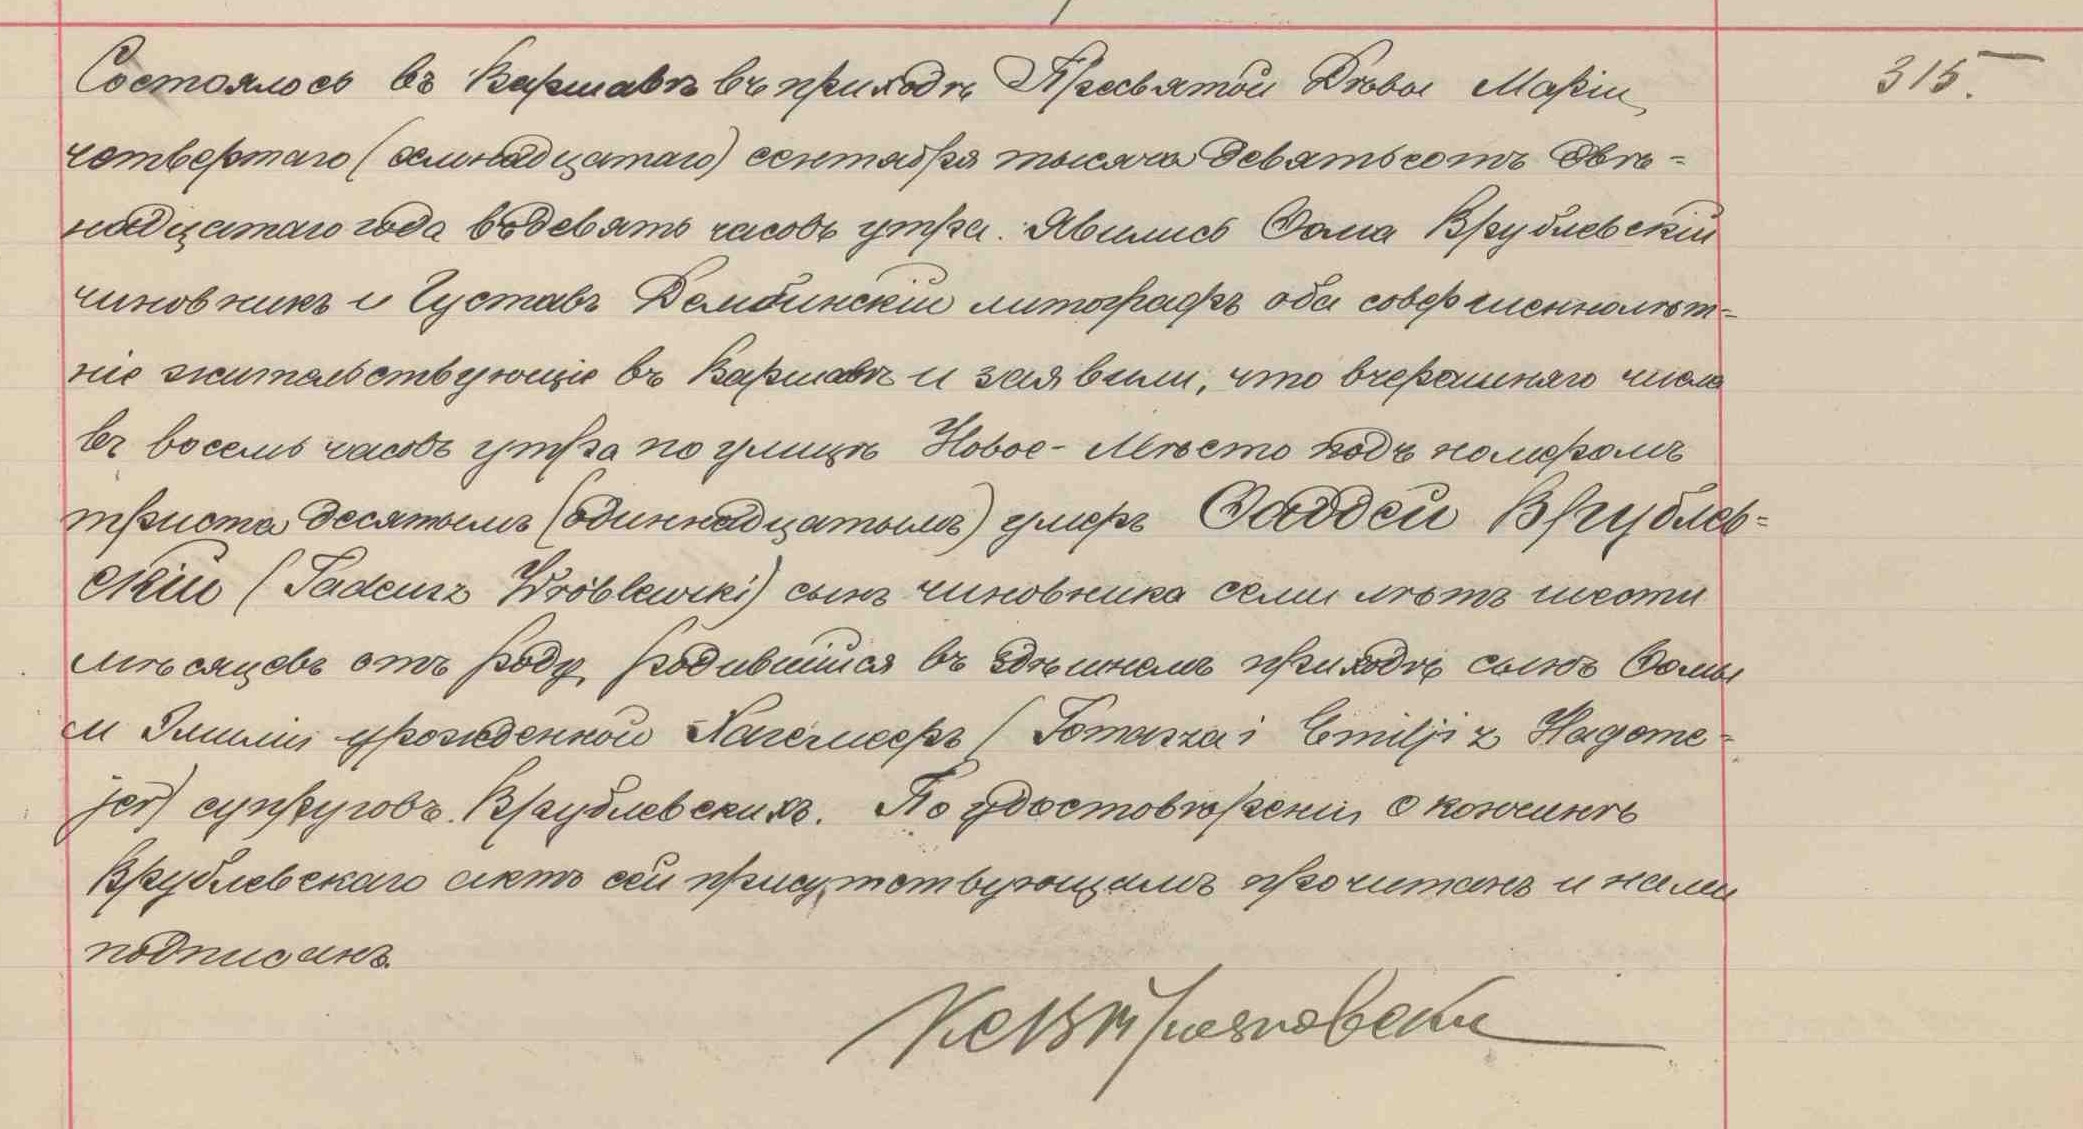 Состоялось въ Варшавѣ въ приходѣ Пресвятой Дѣвы Маріи, 315.
четвертаго (семнадцатаго) сентября тысяча девятьсотъ двѣ=
надцатаго года въ девять часовъ утра. Явились Ѳома Врублевскій
чиновникъ и Густавъ Дембинскій литографъ оба совершеннолѣт=
ніе жительствующіе въ Варшавѣ и заявили, что вчерашняго числа
въ восемь часовъ утра по улицѣ Новое-Мѣсто подъ номеромъ
триста десятымъ (одиннадцатымъ) умеръ Ѳаддей Врублев=
скій (Tadeusz Wróblewski) сынъ чиновника семи лѣтъ шести
мѣсяцевъ отъ роду, родившійся въ здѣшнемъ приходѣ сынъ Ѳомы
и Эмиліи урожденной Хагемееръ (Tomasza i Emilji z Hagome=
jer) супруговъ Врублевскихъ. По удостовѣреніи о кончинѣ
Врублевскаго актъ сей присутствующимъ прочитанъ и нами
подписанъ.